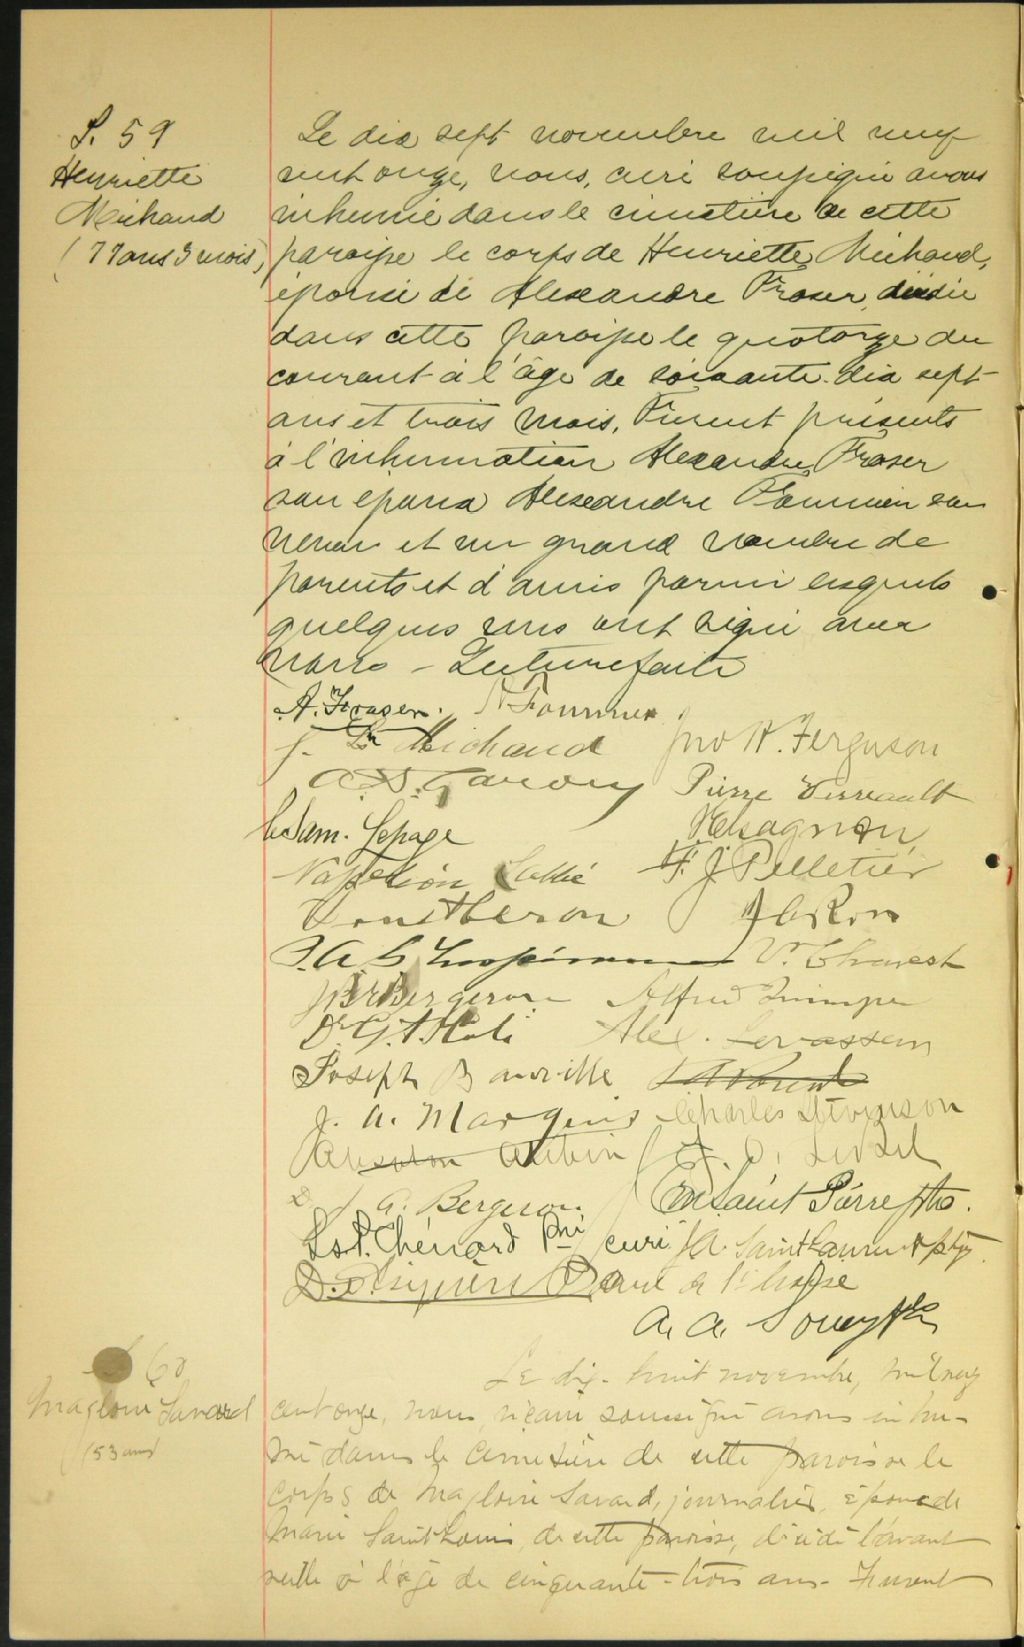 S. 59
Henriette
Michaud
(77 ans 3 mois)
Le dix sept novembre mil neuf
cent onze, nous, curé soussigné avons
inhumé dans le cimetière de cette
paroisse le corps de Henriette Michaud,
épouse de Alexandre Fraser, décédée
dans cette paroisse le quatorze du
courant à l'âge de soixante-dix sept
ans et trois mois. Furent présents
à l'inhumation Alexandre Fraser
son époux Alexandre Fournier son
neveu et un grand nombre de
parents et d'amis parmi lesquels
quelques uns ont signé avec
nous - Lecture faite
A. Fraser. A Fournier
J. Michaud Jno H. Ferguson
Pierre Verreault
Sam. Lepage H Gagnon
Napoléon F. J Pelletier
V. Charest
Bergeron Alfred
Dr Alex. Levasseur
Joseph Banville
J. A. Marquis Charles Stevenson
Aubin
J. A. Bergeron Saint Pierre ptre.
Ls. P. Chénard curé J A. Saint Laurent ptre.
D.
A. A. Soucy Ptre
S 60
Magloire Savard
(53 ans)
Le dix-huit novembre, mil neuf
cent onze, nous, vicaire soussigné avons inhu-
mé dans le cimetière de cette paroisse le
corps de Magloire Savard, journalier, époux de
Marie Saint Louis, de cette paroisse, décédé l'avant
veille à l'âge de cinquante-trois ans. Furent